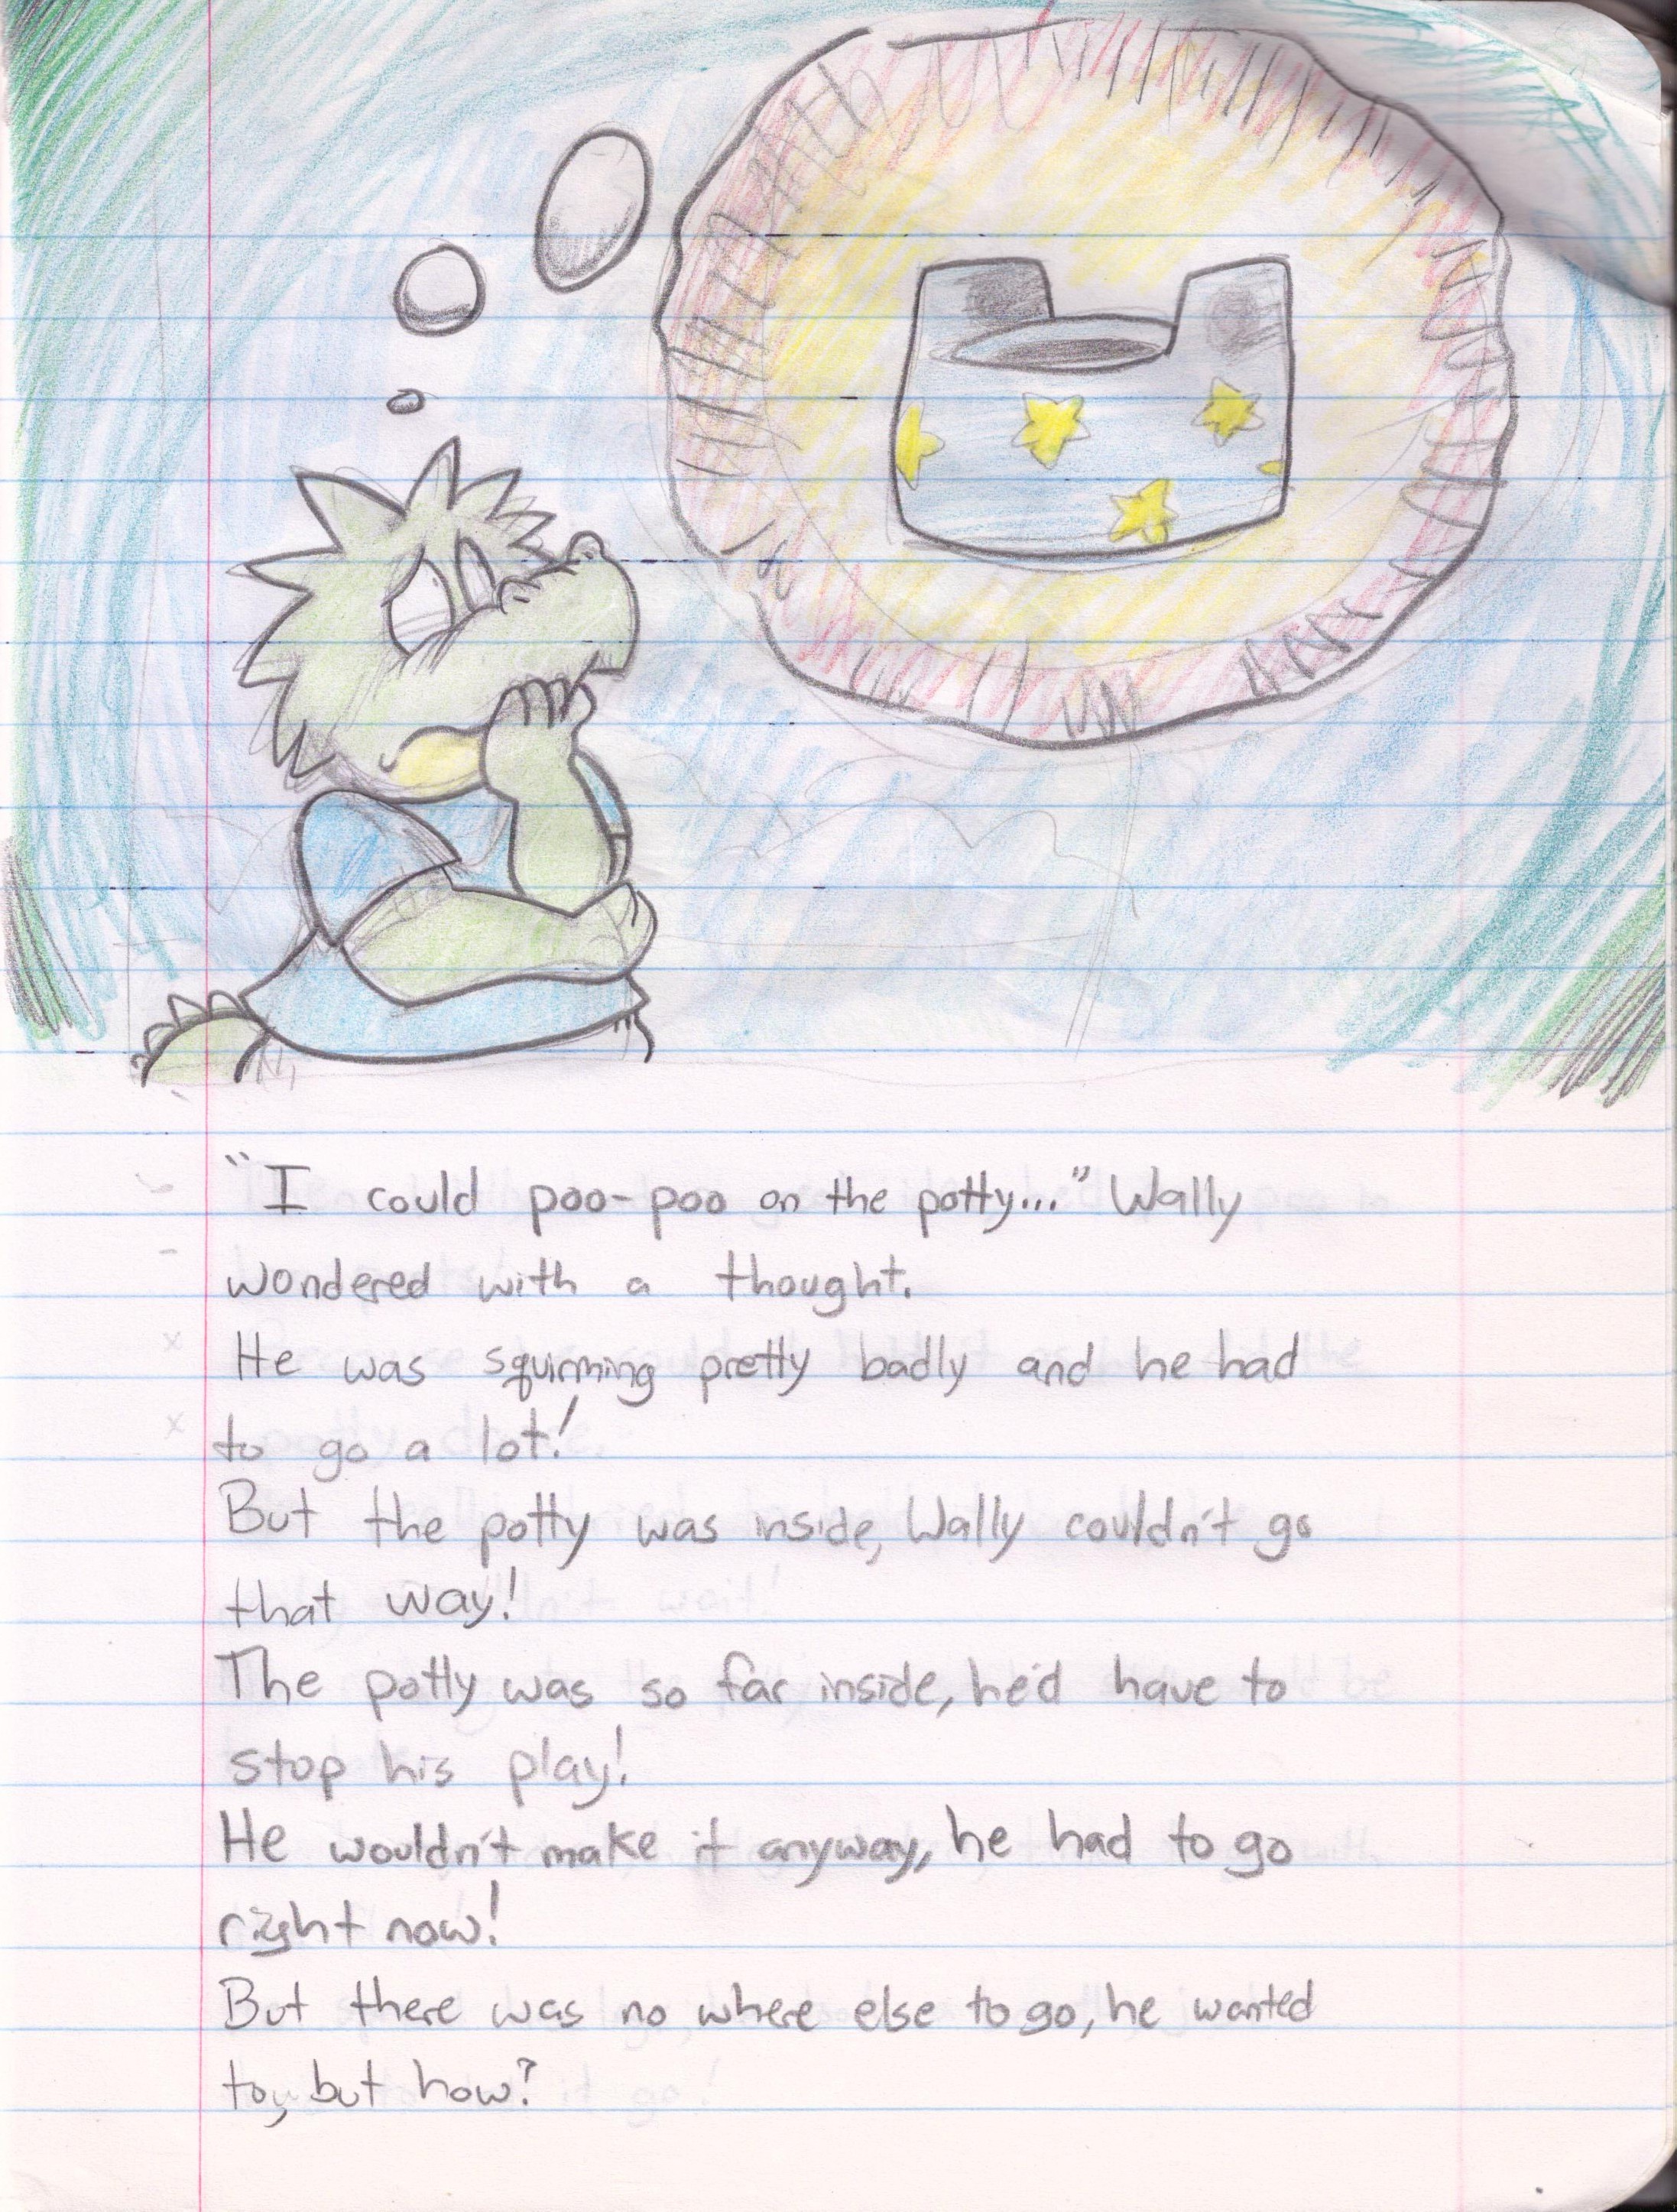 "I could poo-poo on the potty..." Wally
wondered with a thought.
He was squirming pretty badly and he had
to go a lot!
But the potty was inside, Wally couldn't go
that way!
The potty was so far inside, he'd have to
stop his play!
He wouldn't make it anyway, he had to go
right now!
But there was no where else to go, he wanted
to, but how?